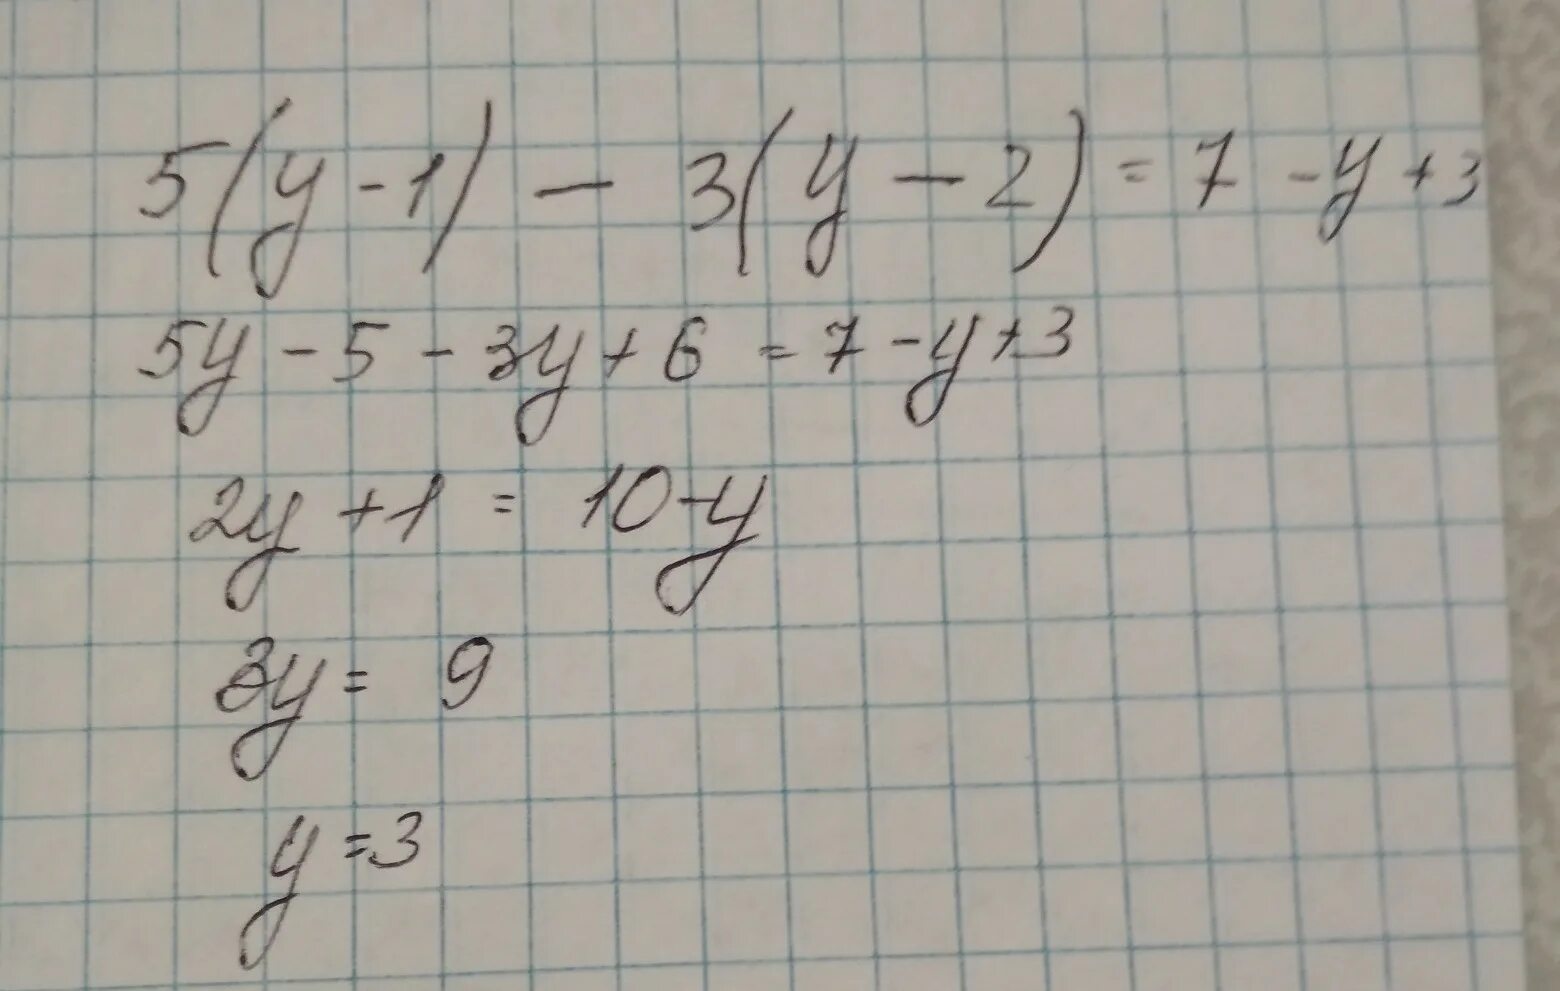 5(y-1) - 3(y-2) = 7 - y + 3
5y - 5 - 3y + 6 = 7 - y + 3
2y + 1 = 10 - y
3y = 9
y = 3